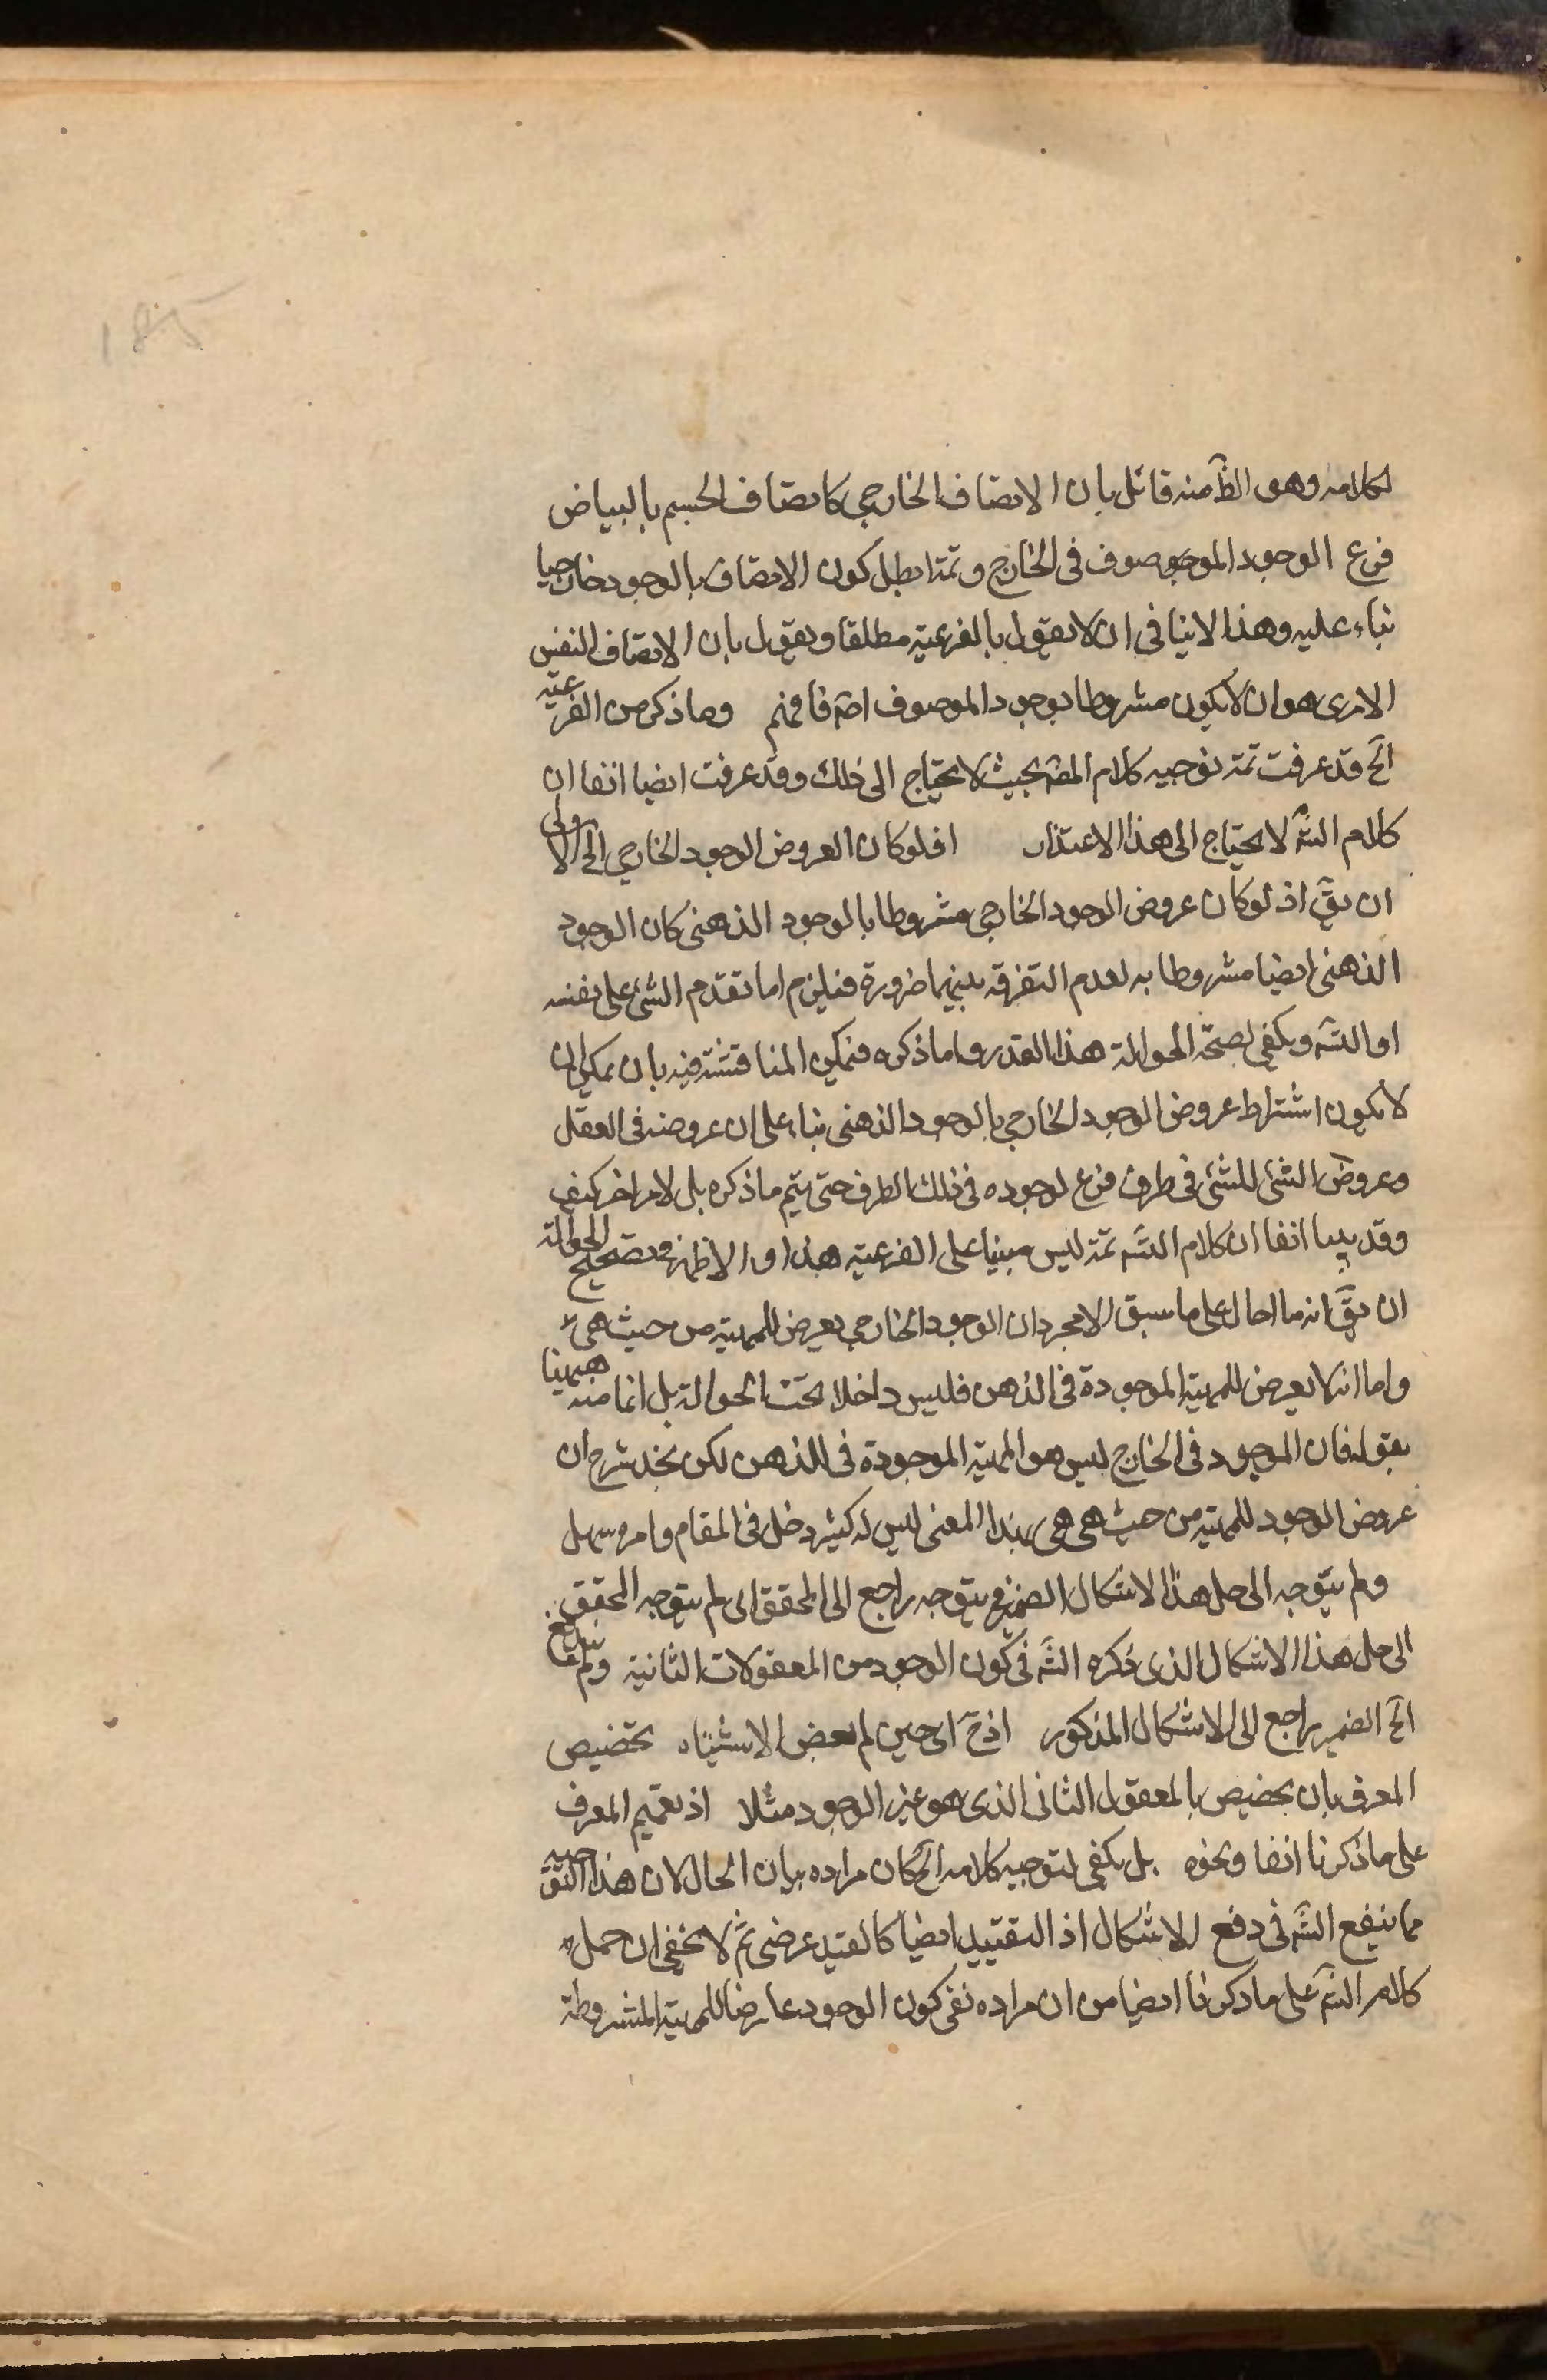 185
لكلامه وهو الظّ منه قائل بان الاتصاف الخارجي كاتصاف الجسم بالبياض
فرع الوجود الموجو صوف في الخارج وثمة ابطل كون الاتصاف بالوجود خارجيا
بناء عليه وهذا لا ينافي ان لا يقول بالفرعية مطلقا ويقول بان الاتصاف النفس
الامري هو ان لا يكون مشروطا بوجود الموصوف اصَ فافهم وما ذكر من الفرعية
الخ قد عرفت ثمة توجيه كلام المصَ بحيث لا يحتاج الى ذلك وقد عرفت ايضا انفا ان
كلام الشَ لا يحتاج الى هذا الاعتذار فلو كان العروض الوجود الخارجي الخ الاولى
ان يقَ اذ لو كان عروض الوجود الخارجي مشروطا بالوجود الذهني كان الوجود
الذهني ايضا مشروطا به لعدم التفرقة بينهما ضرورة فيلزم اما تقدم الشئ على نفسه
او التسَ ويكفي لصحة الحوالة هذا القدر واما ذكره فيمكن المناقشة فيه بان يمكن ان
لا يكون اشتراط عروض الوجود الخارجي بالوجود الذهني بناء على ان عروضه في العقل
وعروض الشئ للشئ في ظرف فرع لوجوده في ذلك الظرف حتى يتم ما ذكره بل لامر اخر كيف
وقد بينا انفا ان كلام الشَ ثمة ليس مبنيا على الفرعية هذا والاظهر في تصحيح الحوالة
ان يقَ انه ما احال على ما سبق الا مجرد ان الوجود الخارجي يعرض للمهية من حيث هي
واما انه لا يعرض للمهية الموجودة في الذهن فليس داخلا تحت الحوالة بل انما منه ههنا
بقوله فان الموجود في الخارج ليس هو المهية الموجودة في الذهن لكن يخدشه ح ان
عروض الوجود للمهية من حيث هي هي بهذا المعنى ليس له كثير دخل في المقام وامره سهل
ولم يتوجه الى حل هذا الاشكال الضمير في يتوجه راجع الى المحقق اي لم يتوجه المحقق
الى حل هذا الاشكال الذي ذكره الشَ في كون الوجود من المعقولات الثانية ولم يندفع
الخ الضمير راجع الى الاشكال المذكور اذ حَ اي حين لم بعض الاشتباه تخصيص
المعرف بان يخصيص بالمعقول الثاني الذي هو غير الوجود مثلا اذ تعميم المعرف
على ما ذكرنا انفا ونحوه بل يكفي لتوجيه كلامه الخ كان مراده بيان الحال لان هذا التوجيه
مما ينفع الشَ في دفع الاشكال اذ التقييد ايضا كالقيد عرضي ثم لا يخفى ان حمل
كلام الشَ على ما ذكرنا ايضا من ان مراده نفي كون الوجود عارضا للمهية المشروطة